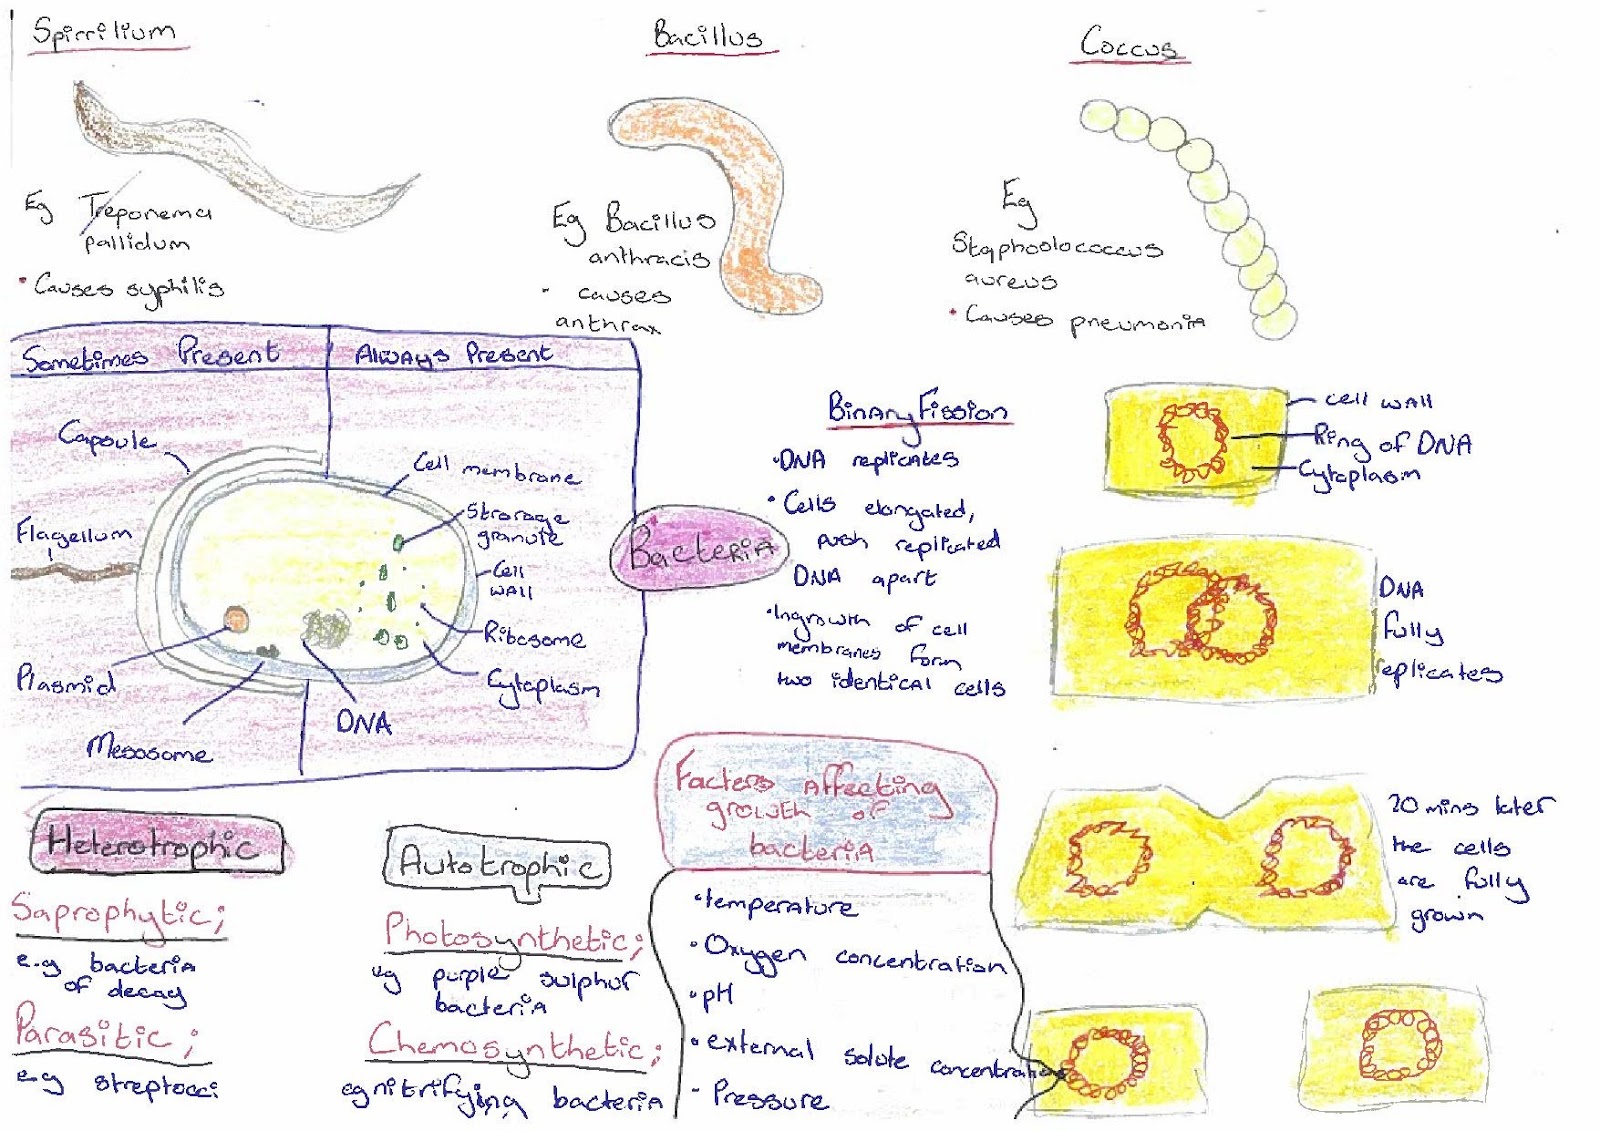 Spirrilium
Eg Treponema
pallidum
• Causes syphilis
Bacillus
Eg Bacillus
anthracis
- causes
anthrax
Coccus
Eg
Staphoolococcus
aureus
• Causes pneumonia
Sometimes Present
Always Present
Capsule
Flagellum
Plasmid
Mesosome
Cell membrane
Strorage
granule
Cell
wall
Ribosome
Cytoplasm
DNA
Bacteria
Binary Fission
• DNA replicates
• Cells elongated,
push replicated
DNA apart
• Ingrowth of cell
membranes form
two identical cells
cell wall
Ring of DNA
Cytoplasm
DNA
fully
replicates
20 mins later
the cells
are fully
grown
Heterotrophic
Saprophytic;
e.g bacteria
of decay
Parasitic;
e.g streptocci
Autotrophic
Photosynthetic;
eg purple sulphur
bacteria
Chemosynthetic;
eg nitrifying bacteria
Factors Affecting
growth of
bacteria
• temperature
• Oxygen concentration
• pH
• external solute concentration
- Pressure